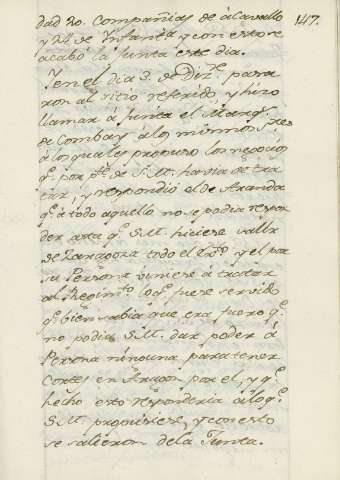 dad 20. Compañias de á Cavallo 147.
y 24 de Infanta. y con esto se
acabó la Junta este dia.
Y en el dia 3. de Diz.e pasa
ron al sitio referido, y hizo
llamar á Junta el Marq.s
de Lombay á los mismos S.res
á los quales propuso los negocios
q.e por p.te de S. M. havia de tra
tar, y respondió el de Aranda
q.e á todo aquello no se podia respon
der asta q.e S. M. hiciese salir
de Zaragoza todo el Ex.to y el por
su Persona viniese á tratar
al Regim.to loq.e fuese servido
q.e bien sabia que era fuero q.e
no podia S. M. dar poder á
Persona ninguna para tener
Cortes en Aragon por el, y q.e
hecho esto responderia á loq.e
S. M. propusiese, y con esto
se salieron dela Junta.